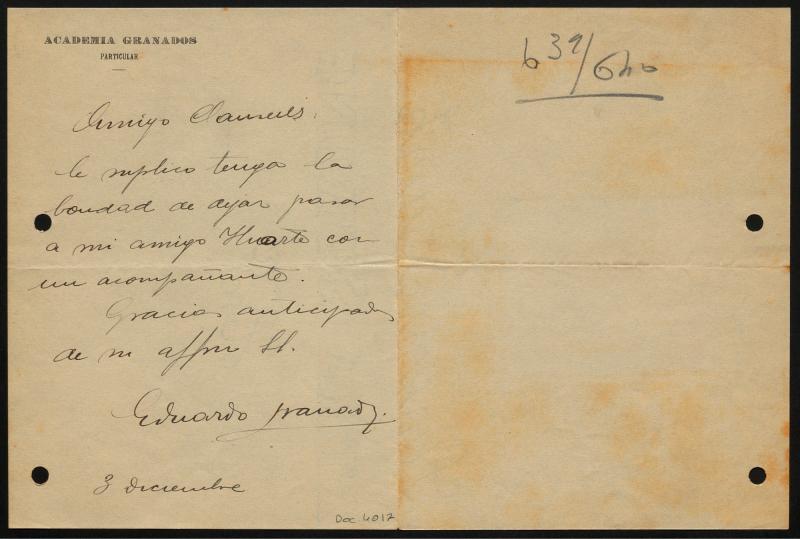 ACADEMIA GRANADOS
PARTICULAR
Amigo Clausells:
le suplico tenga la
bondad de dejar pasar
a mi amigo Huarte con
un acompañante.
Gracias anticipadas
de su affmo
Eduardo Granados
3 diciembre
Doc 4017
639/640